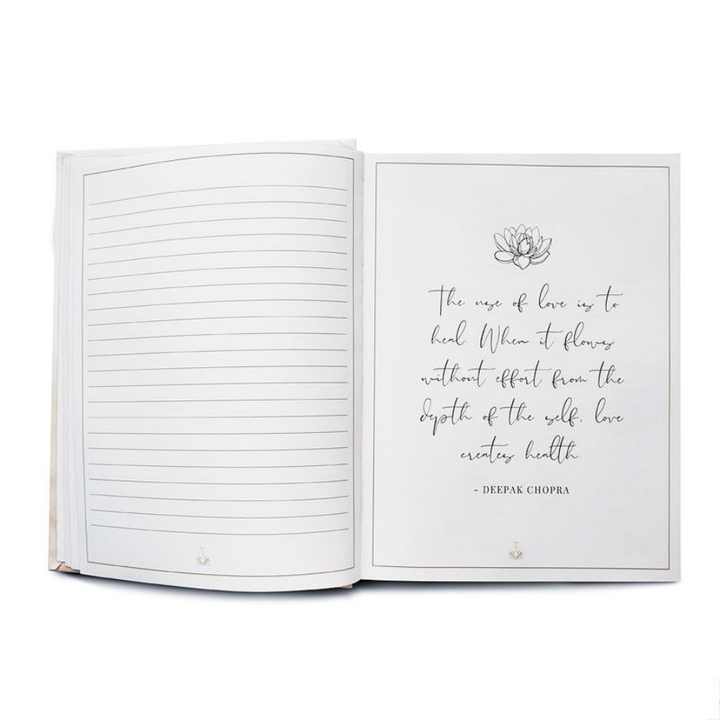 The use of love is to
heal. When it flows
without effort from the
depth of the self, love
creates health
- DEEPAK CHOPRA